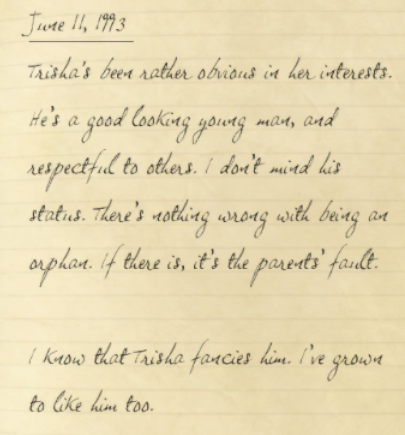 June 11, 1993
Trisha's been rather obvious in her interests.
He's a good looking young man, and
respectful to others. I don't mind his
status. There's nothing wrong with being an
orphan. If there is, it's the parents' fault.
I know that Trisha fancies him. I've grown
to like him too.